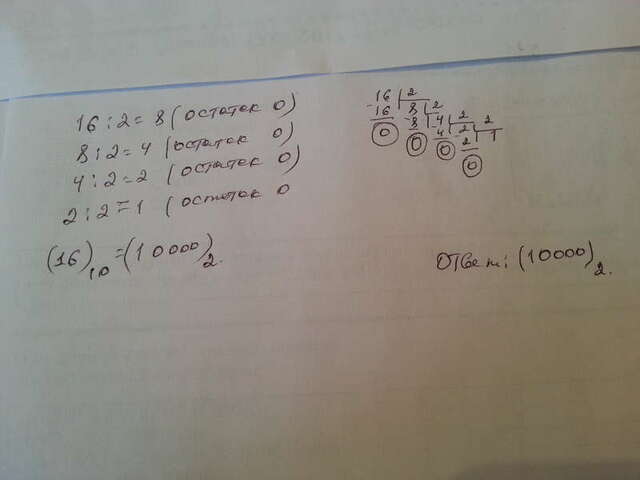 16 : 2 = 8 (остаток 0)
8 : 2 = 4 (остаток 0)
4 : 2 = 2 (остаток 0)
2 : 2 = 1 (остаток 0
(16)10 = (10000)2.
16 2
16 8 2
0 8 4 2
0 4 2 2
0 2 1
0
Ответ: (10000)2.